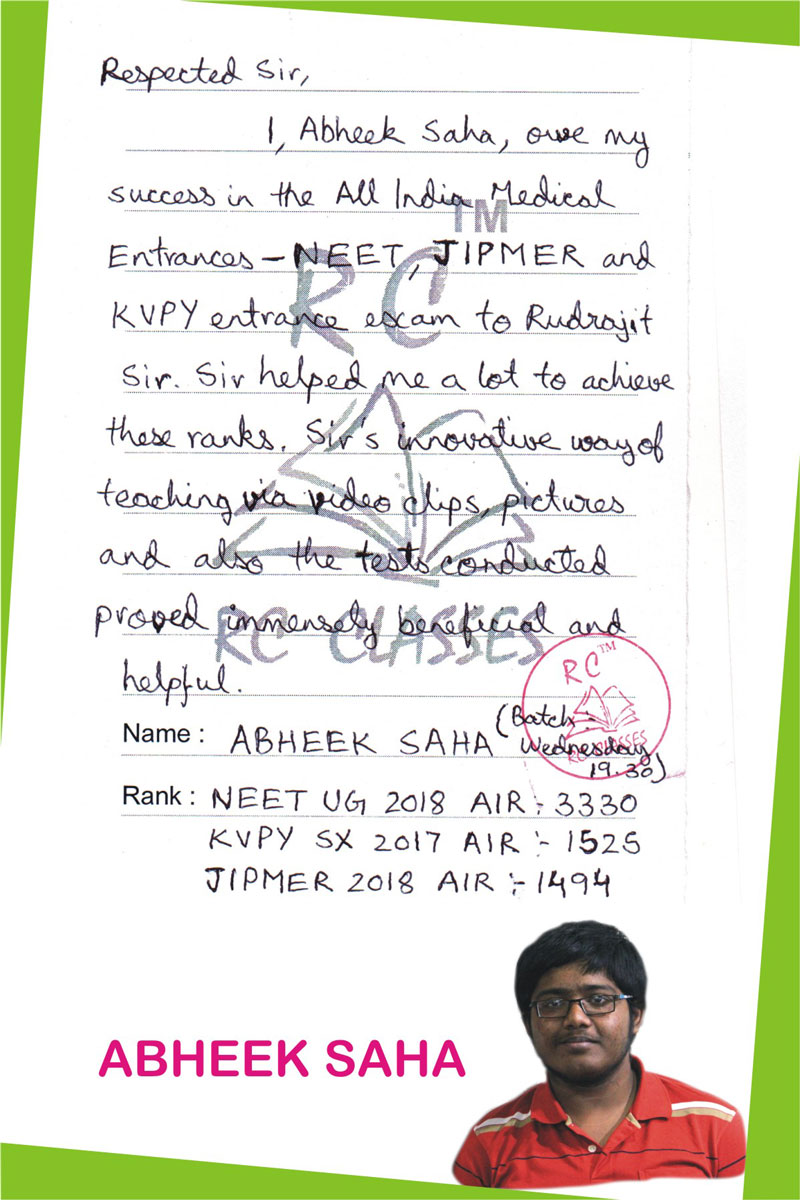 Respected Sir,
I, Abheek Saha, owe my
success in the All India Medical
Entrances – NEET, JIPMER and
KVPY entrance exam to Rudrajit
Sir. Sir helped me a lot to achieve
these ranks. Sir's innovative way of
teaching via video clips, pictures
and also the tests conducted
proved immensely beneficial and
helpful.
TM
RC
RC CLASSES
RC TM
RC CLASSES
Name : ABHEEK SAHA (Batch :-
Wednesday
19.30)
Rank : NEET UG 2018 AIR :- 3330
KVPY SX 2017 AIR :- 1525
JIPMER 2018 AIR :- 1494
ABHEEK SAHA